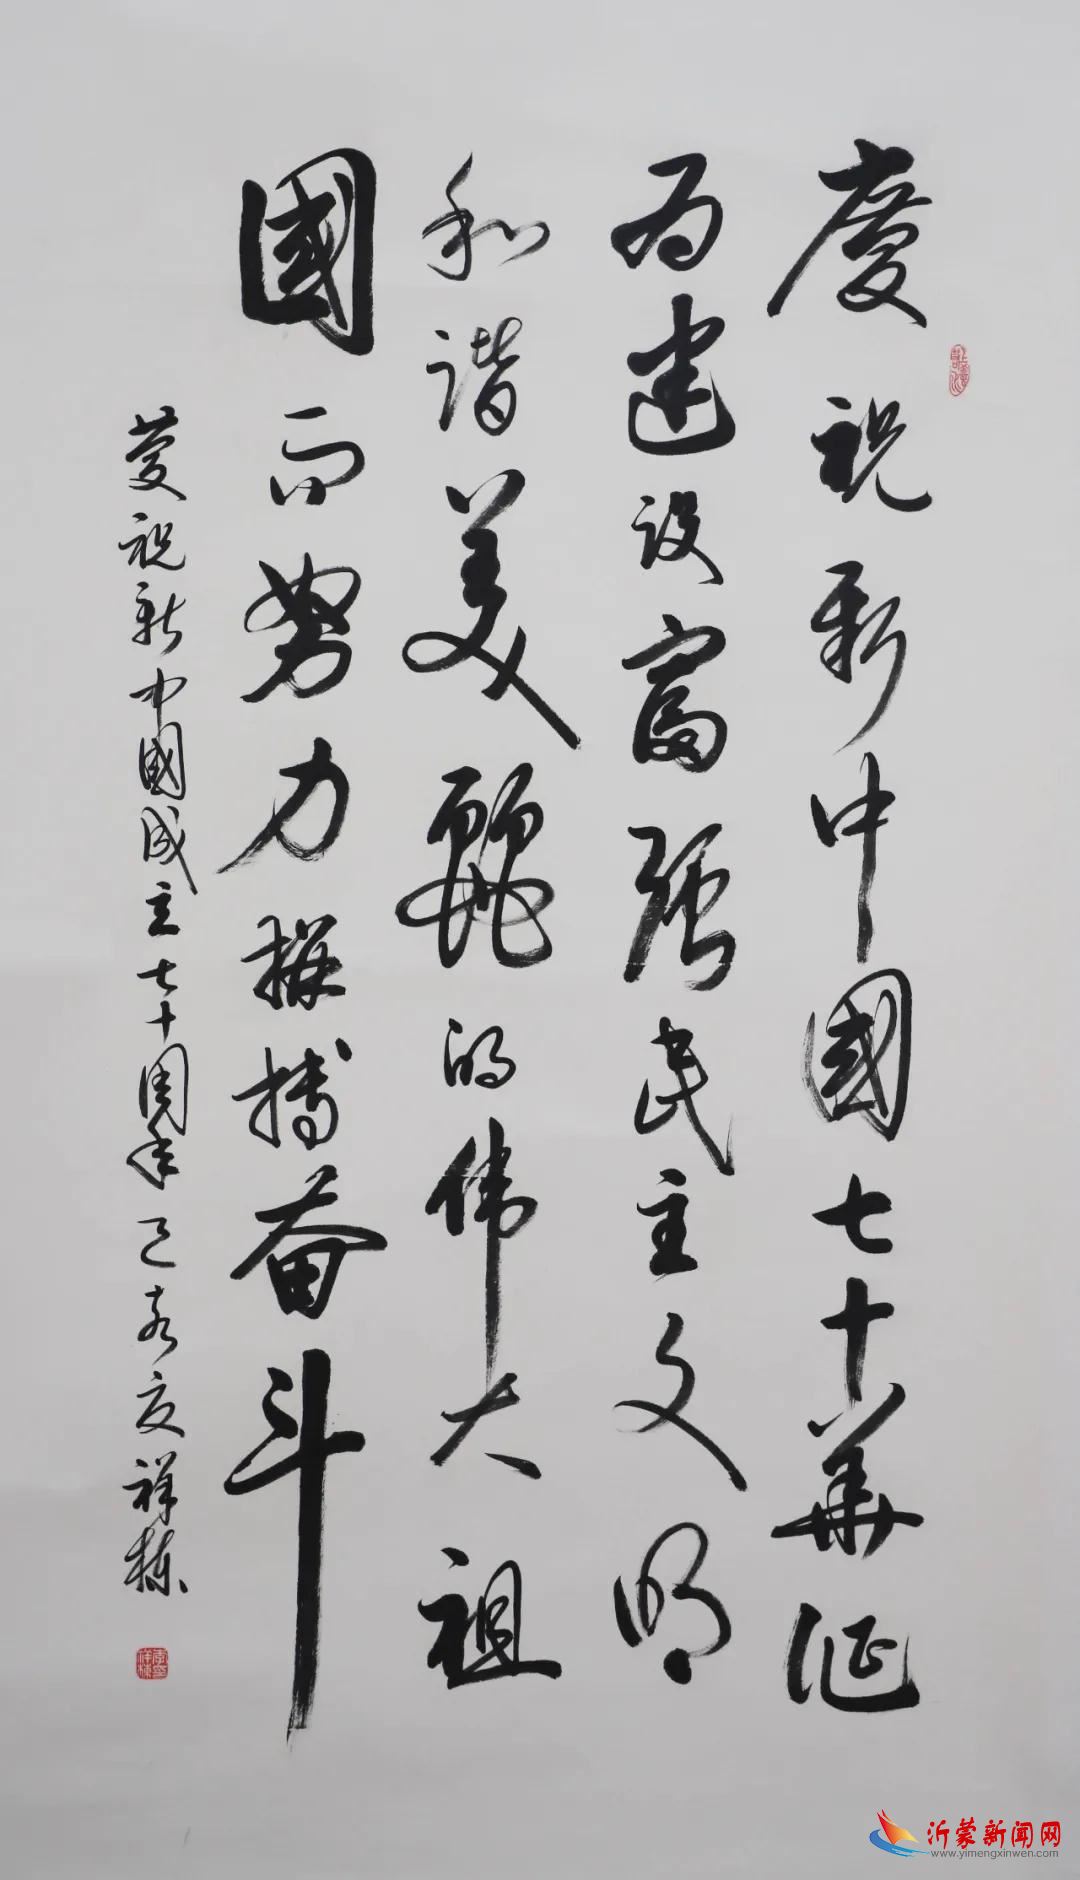 慶祝新中國七十華诞
为建设富强民主文明
和谐美麗的伟大祖
國而努力拼搏奋斗
慶祝新中國成立七十周年己亥夏祥栋
沂蒙新闻网
www.yimengxinwen.com